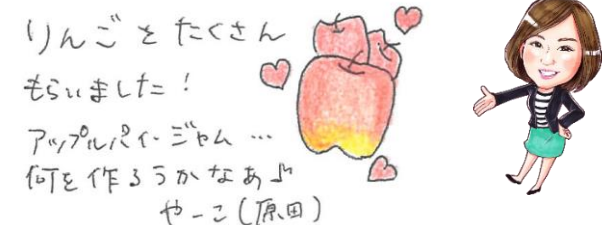 りんごをたくさん
もらいました!
アップルパイ・ジャム…
何を作ろうかなあ♪
やーこ(原田)